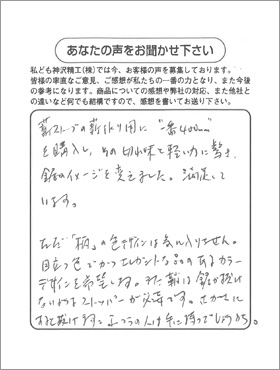 あなたの声をお聞かせ下さい
私ども神沢精工(株)では今、お客様の声を募集しております。
皆様の率直なご意見、ご感想が私たちの一番の力となり、また今後
の参考になります。商品についての感想や弊社の対応、また他社と
の違いなど何でも結構ですので、感想を書いてお送り下さい。
薪ストーブの薪作り用に"一番400mm"
を購入し、その切れ味と軽い力に驚き、
鋸のイメージを変えました。満足して
います。
ただ「柄」の色デザインは気に入りません。
目立つ色でかつエレガントな品のあるカラー
デザインを希望します。また鞘は鋸が抜け
ないようなストッパーが必要です。さかさに
すると抜け